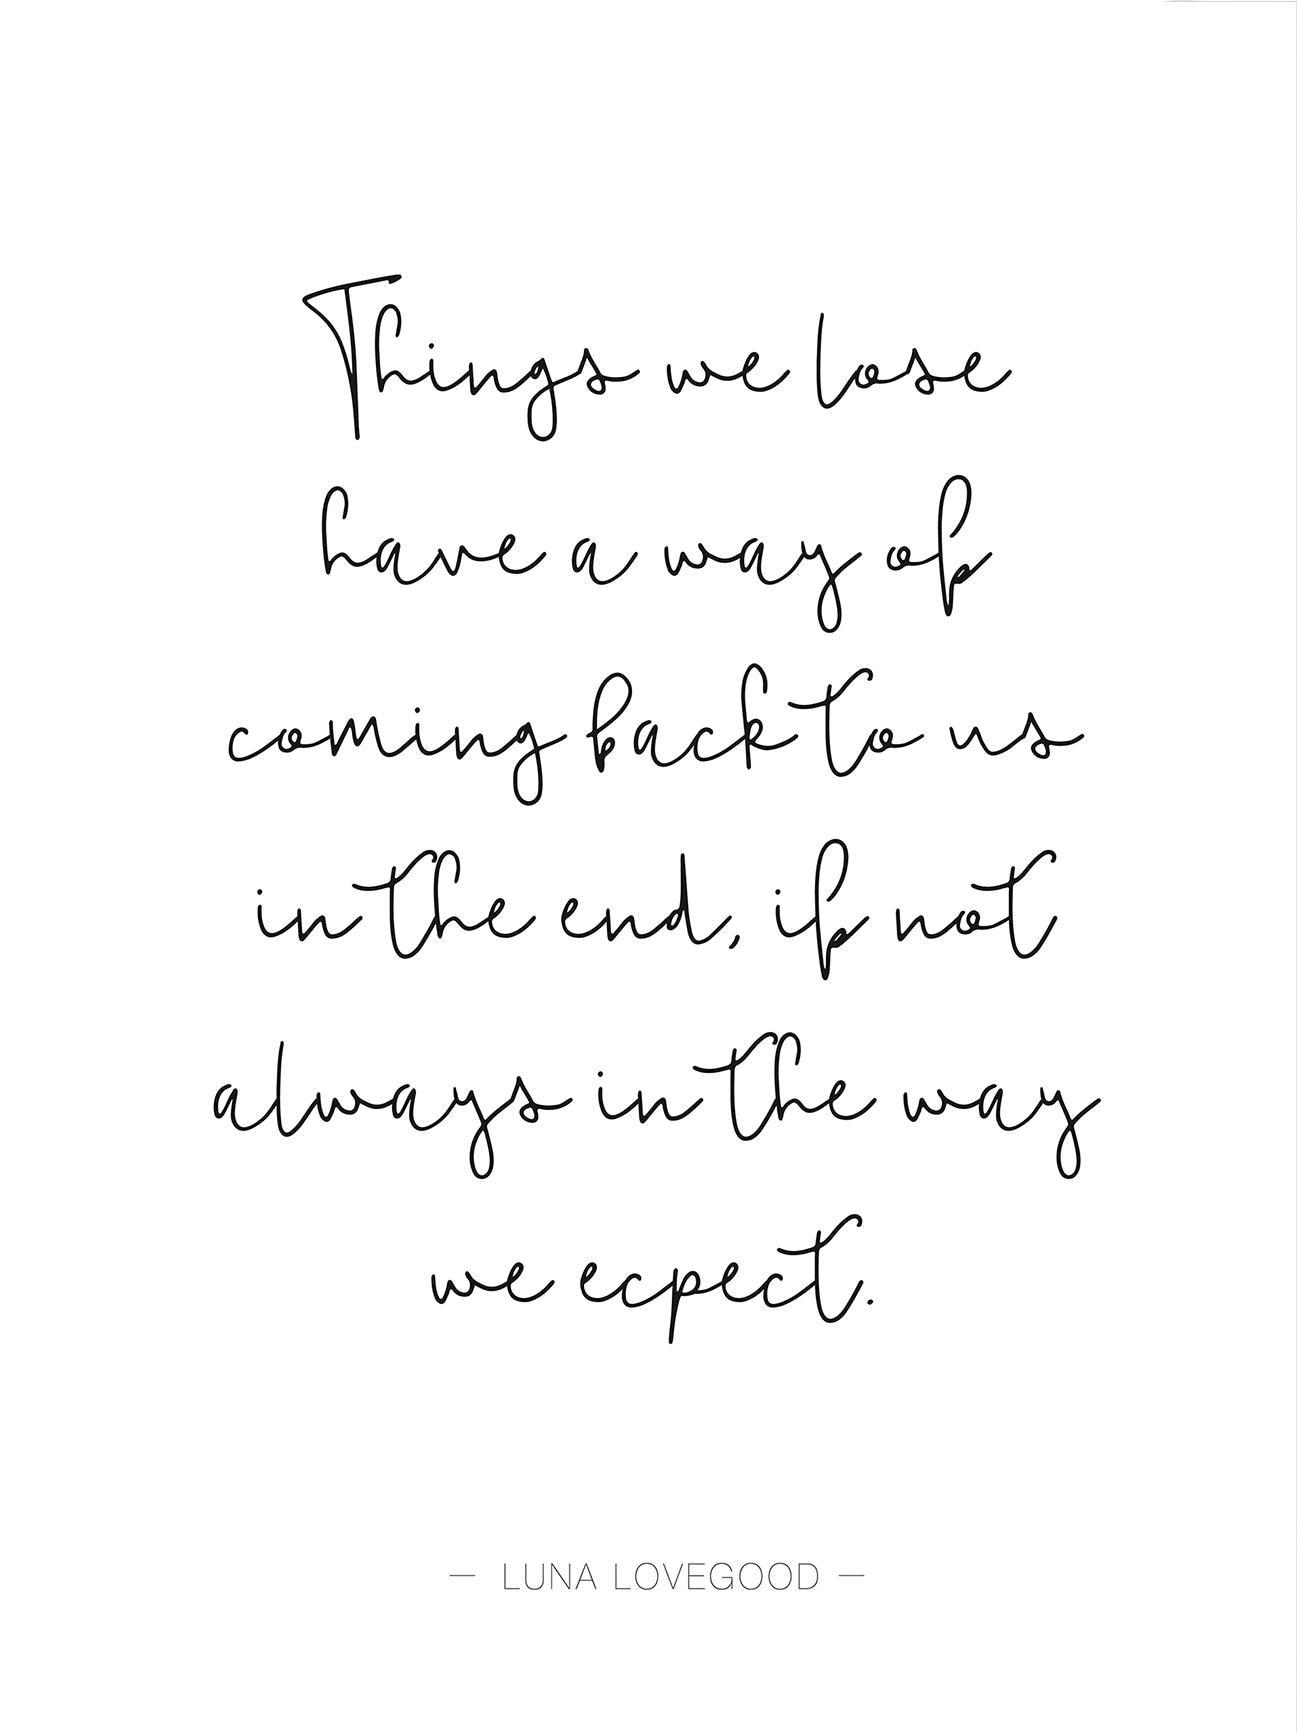 Things we lose
have a way of
coming back to us
in the end, if not
always in the way
we ecpect.
— LUNA LOVEGOOD —